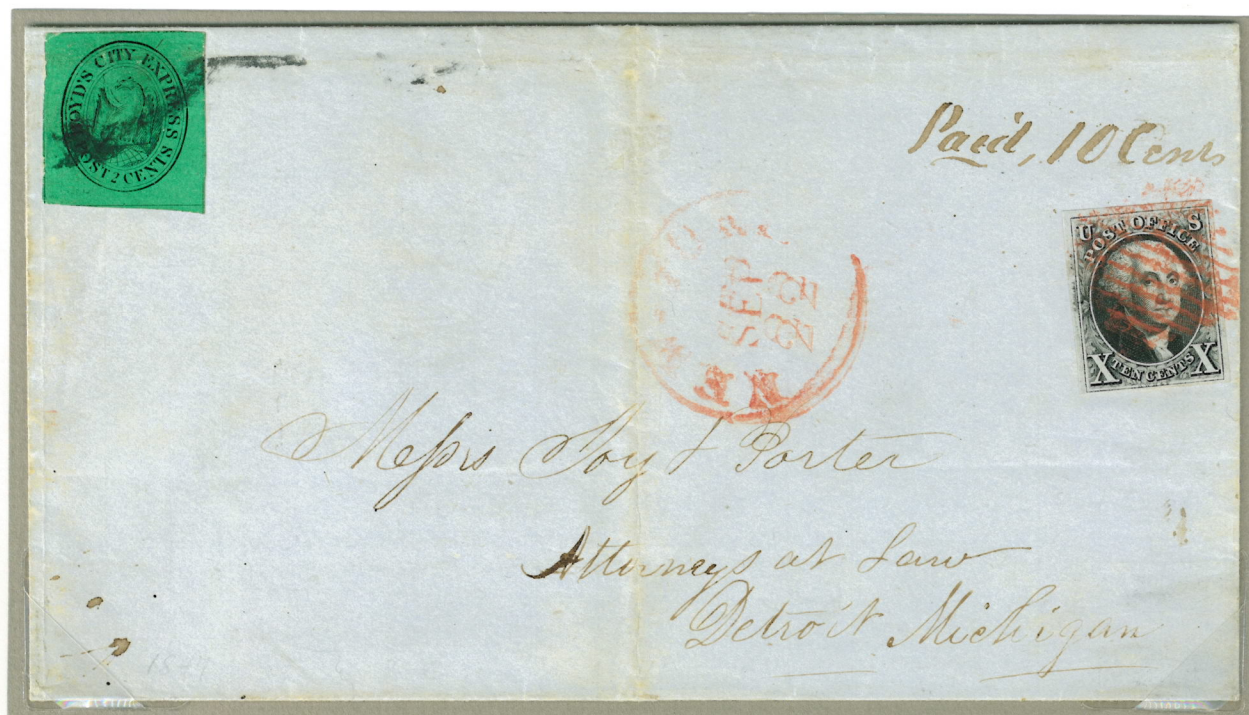 BOYD'S CITY EXPRESS
POST 2 CENTS
Paid, 10 Cents
U S
POST OFFICE
X TEN CENTS X
NEW-YORK
SEP
Messrs Joy & Porter
Attorneys at Law
Detroit Michigan